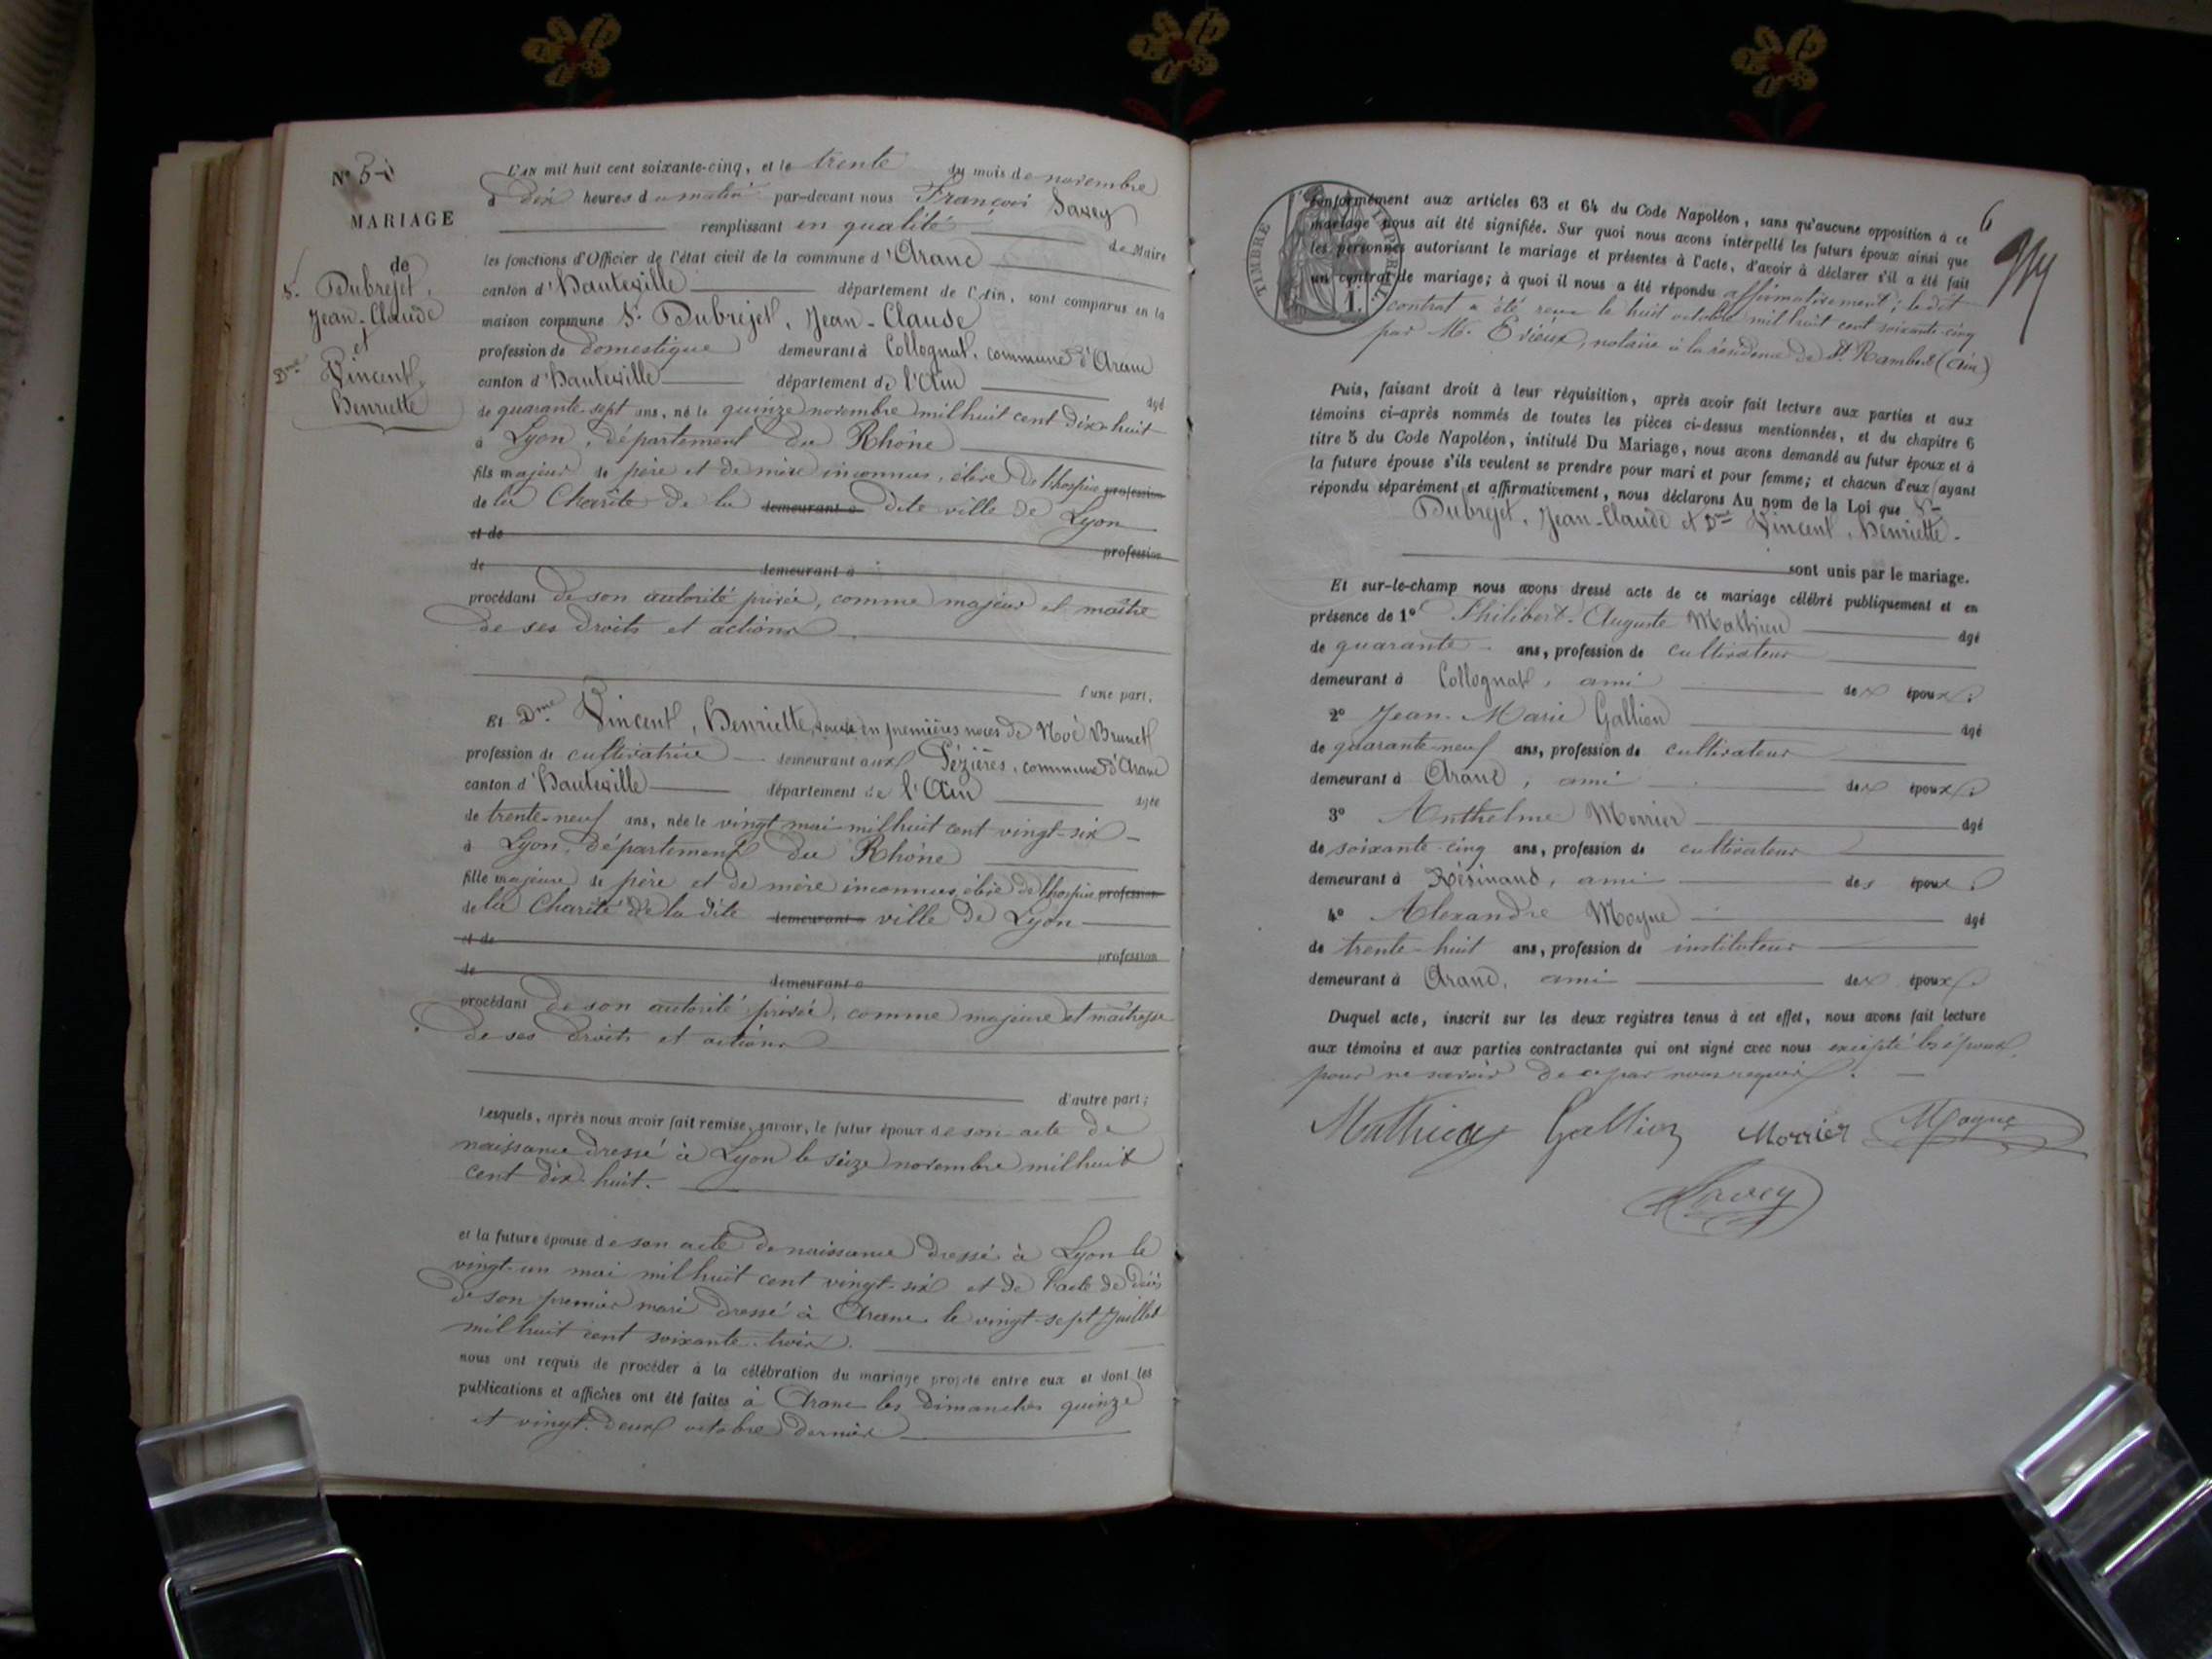 N° 5
MARIAGE
de
S. Dubrejet,
Jean-Claude
et
Dme Vincent,
Henriette
L'AN mil huit cent soixante-cinq, et le trente du mois de novembre
à dix heures du matin par-devant nous François Savey
remplissant en qualité de Maire
les fonctions d'Officier de l'état civil de la commune d'Aranc
canton d'Hauteville département de l'Ain, sont comparus en la
maison commune Sr Dubrejet, Jean-Claude
profession de domestique demeurant à Collognat, commune d'Aranc
canton d'Hauteville département de l'Ain âgé
de quarante-sept ans, né le quinze novembre mil huit cent dix-huit
à Lyon, département du Rhône
fils majeur de père et de mère inconnus, élève de l'hospice profession
de la Charité de la demeurant à dite ville de Lyon
et de profession
de demeurant à
procédant de son autorité privée, comme majeur et maître
de ses droits et actions
d'une part.
Et Dme Vincent, Henriette, veuve en premières noces de Noé Brunet
profession de cultivatrice demeurant aux Pézières, commune d'Aranc
canton d'Hauteville département de l'Ain âgée
de trente-neuf ans, née le vingt mai mil huit cent vingt-six
à Lyon, département du Rhône
fille majeure de père et de mère inconnus, élève de l'hospice profession
de la Charité de la dite demeurant à ville de Lyon
et de profession
de demeurant à
procédant de son autorité privée, comme majeure et maîtresse
de ses droits et actions
d'autre part;
Lesquels, après nous avoir fait remise, savoir, le futur époux de son acte de
naissance dressé à Lyon le seize novembre mil huit
cent dix-huit.
et la future épouse de son acte de naissance dressé à Lyon le
vingt-un mai mil huit cent vingt-six et de l'acte de décès
de son premier mari dressé à Aranc le vingt-sept Juillet
mil huit cent soixante-trois.
nous ont requis de procéder à la célébration du mariage projeté entre eux et dont les
publications et affiches ont été faites à Aranc les dimanches quinze
et vingt-deux octobre dernier
6
TIMBRE IMPÉRIAL
1.
conformément aux articles 63 et 64 du Code Napoléon, sans qu'aucune opposition à ce
mariage nous ait été signifiée. Sur quoi nous avons interpellé les futurs époux ainsi que
les personnes autorisant le mariage et présentes à l'acte, d'avoir à déclarer s'il a été fait
un contrat de mariage; à quoi il nous a été répondu affirmativement; ledit
contrat a été reçu le huit octobre mil huit cent soixante-cinq
par Me Evieux, notaire à la résidence de St Rambert (Ain)
Puis, faisant droit à leur réquisition, après avoir fait lecture aux parties et aux
témoins ci-après nommés de toutes les pièces ci-dessus mentionnées, et du chapitre 6
titre 5 du Code Napoléon, intitulé Du Mariage, nous avons demandé au futur époux et à
la future épouse s'ils veulent se prendre pour mari et pour femme; et chacun d'eux ayant
répondu séparément et affirmativement, nous déclarons Au nom de la Loi que Sr
Dubrejet, Jean-Claude et Dme Vincent, Henriette.
sont unis par le mariage.
Et sur-le-champ nous avons dressé acte de ce mariage célébré publiquement et en
présence de 1° Philibert-Auguste Mathieu âgé
de quarante ans, profession de cultivateur
demeurant à Collognat, ami des époux.
2° Jean-Marie Gallion âgé
de quarante-neuf ans, profession de cultivateur
demeurant à Aranc, ami des époux.
3° Anthelme Morrier âgé
de soixante-cinq ans, profession de cultivateur
demeurant à Résinand, ami des époux.
4° Alexandre Moyne âgé
de trente-huit ans, profession de instituteur
demeurant à Aranc, ami des époux.
Duquel acte, inscrit sur les deux registres tenus à cet effet, nous avons fait lecture
aux témoins et aux parties contractantes qui ont signé avec nous excepté les époux,
pour ne savoir de ce par nous requis.
Mathieu Gallion Morrier Moyne
Savey